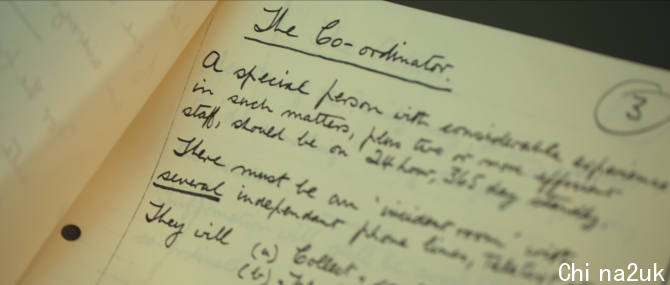 The Co-ordinator.
3
A special person with considerable experience
in such matters, plus two or more efficient
staff, should be on 24 hour, 365 day standby.
There must be an 'incident room' with
several independent phone lines,
They will (a) Collect
(b)
Chi na2uk